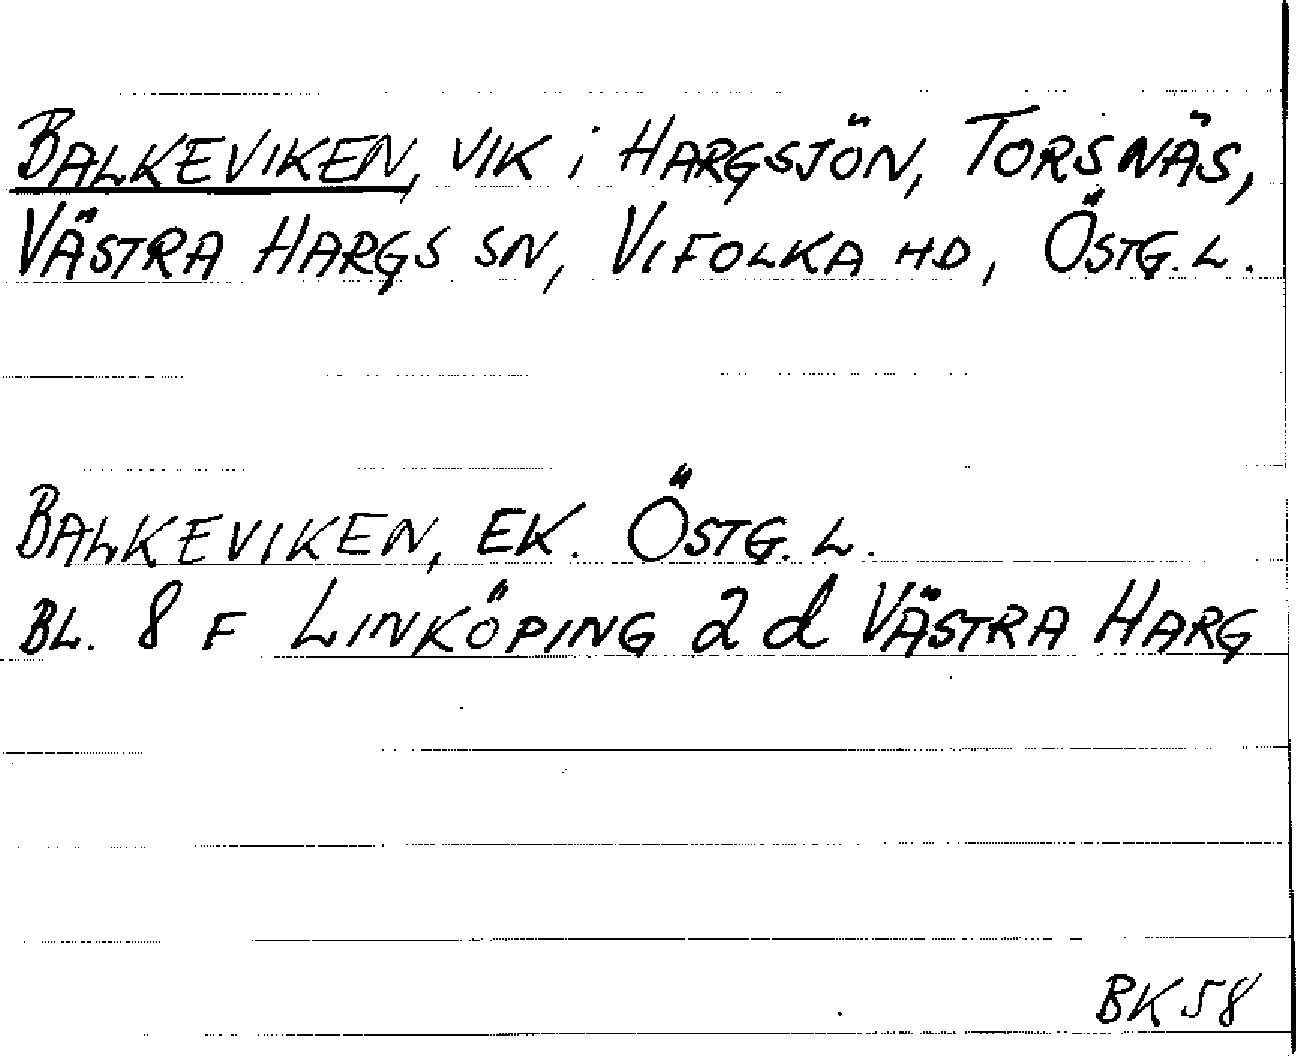 BALKEVIKEN, VIK i HARGSJÖN, TORSNÄS,
VÄSTRA HARGS SN, VIFOLKA HD, ÖSTG. L.
BALKEVIKEN, EK. ÖSTG. L.
BL. 8 F LINKÖPING 2 d VÄSTRA HARG
BK 58